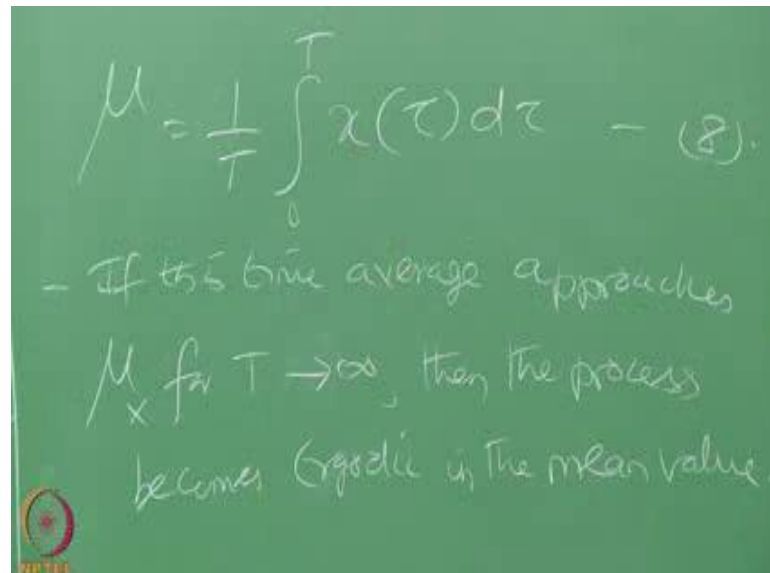 μ = 1/T ∫₀ᵀ x(τ) dτ - (8).
- If this time average approaches
μₓ for T → ∞, then the process
becomes Ergodic in the mean value.
NPTEL